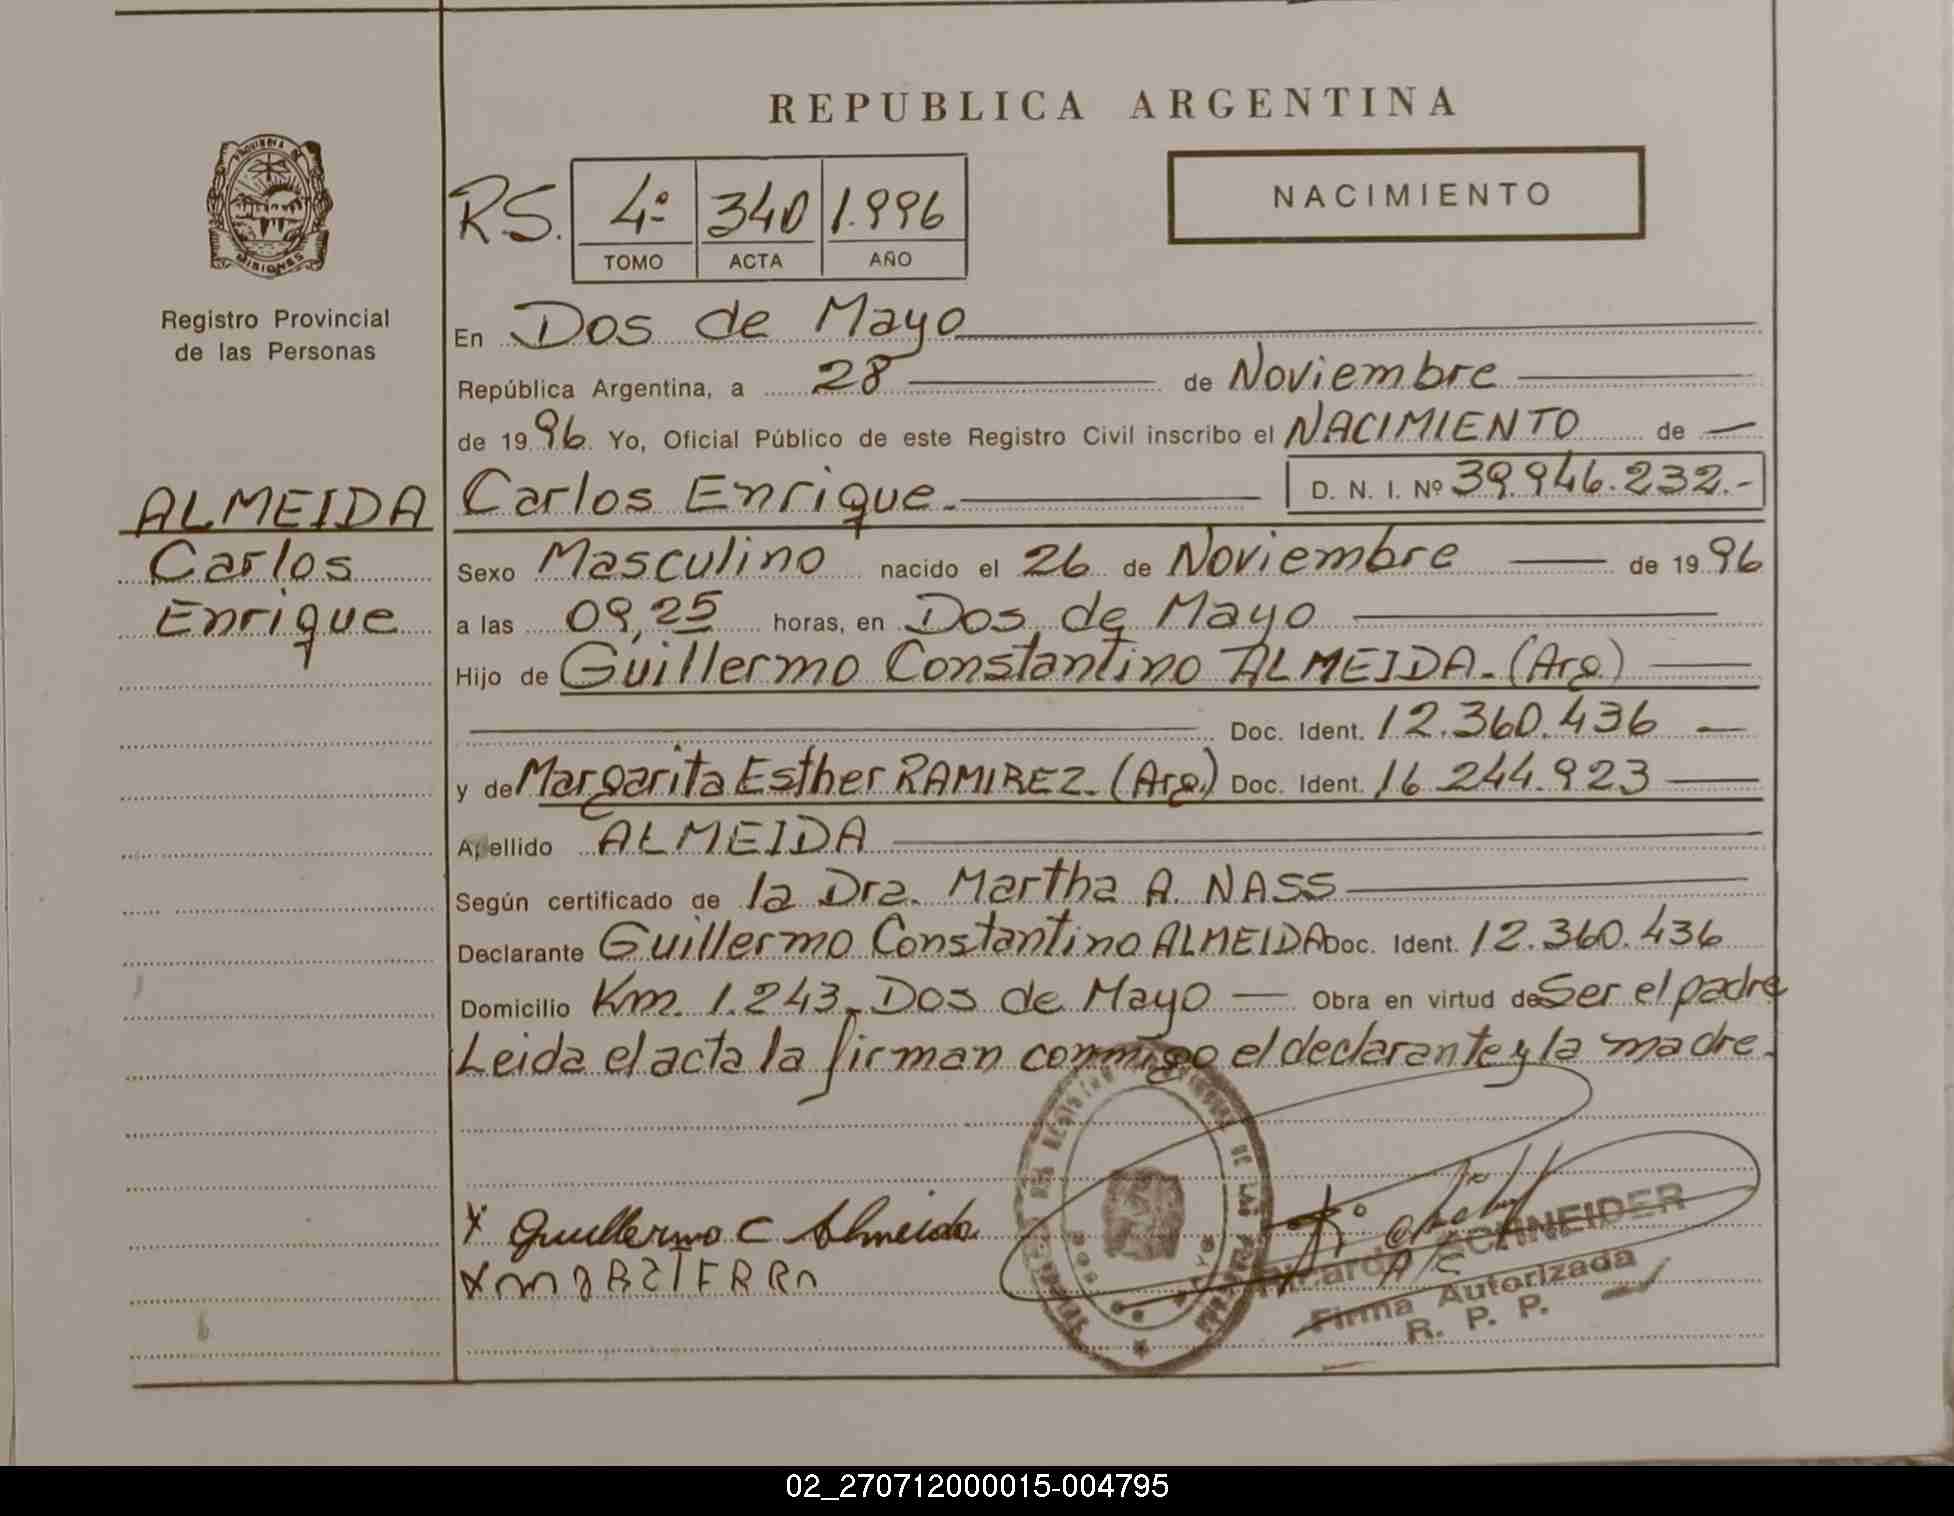 REPUBLICA ARGENTINA
PROVINCIA DE
MISIONES
Registro Provincial
de las Personas
NACIMIENTO
RS. 4º 340 1.996
TOMO ACTA AÑO
En Dos de Mayo
República Argentina, a 28 de Noviembre
de 1996. Yo, Oficial Público de este Registro Civil inscribo el NACIMIENTO de
ALMEIDA Carlos Enrique. D. N. I. Nº 39.946.232.-
Carlos
Enrique
Sexo Masculino nacido el 26 de Noviembre de 1996
a las 09,25 horas, en Dos de Mayo
Hijo de Guillermo Constantino ALMEIDA. (Arg.)
Doc. Ident. 12.360.436
y de Margarita Esther RAMIREZ. (Arg.) Doc. Ident. 16.244.923
Apellido ALMEIDA
Según certificado de la Dra. Martha A. NASS
Declarante Guillermo Constantino ALMEIDA Doc. Ident. 12.360.436
Domicilio Km. 1.243. Dos de Mayo Obra en virtud de Ser el padre
Leida el acta la firman conmigo el declarante y la madre.
X Guillermo C Almeida
Ricardo SCHNEIDER
A/C
Firma Autorizada
R. P. P.
02_270712000015-004795